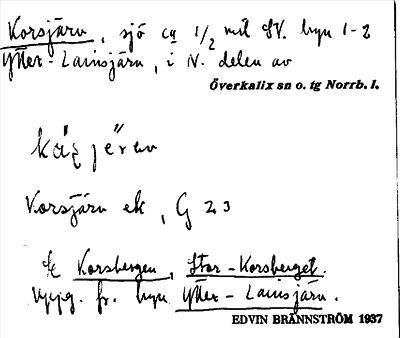 Korsjärv, sjö ca 1/2 mil SV. byn 1-2
Ytter-Lainsjärv, i N. delen av
Överkalix sn o. tg Norrb. l.
Korsjärv ek, G 23
Se Korsbergen, Stor-Korsberget.
Uppg. fr. byn Ytter-Lainsjärv.
EDVIN BRÄNNSTRÖM 1937